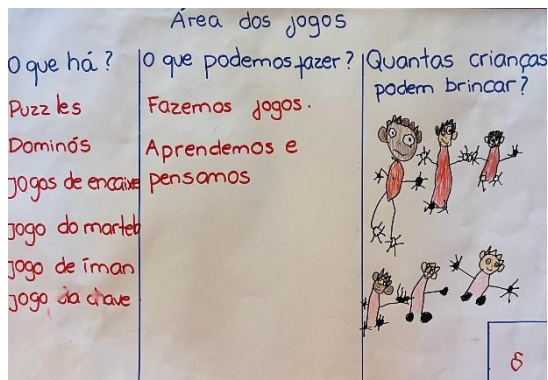 Área dos jogos
O que há?
Puzzles
Dominós
Jogos de encaixe
Jogo do martelo
Jogo de íman
Jogo da chave
O que podemos fazer?
Fazemos jogos.
Aprendemos e
pensamos
Quantas crianças
podem brincar?
6